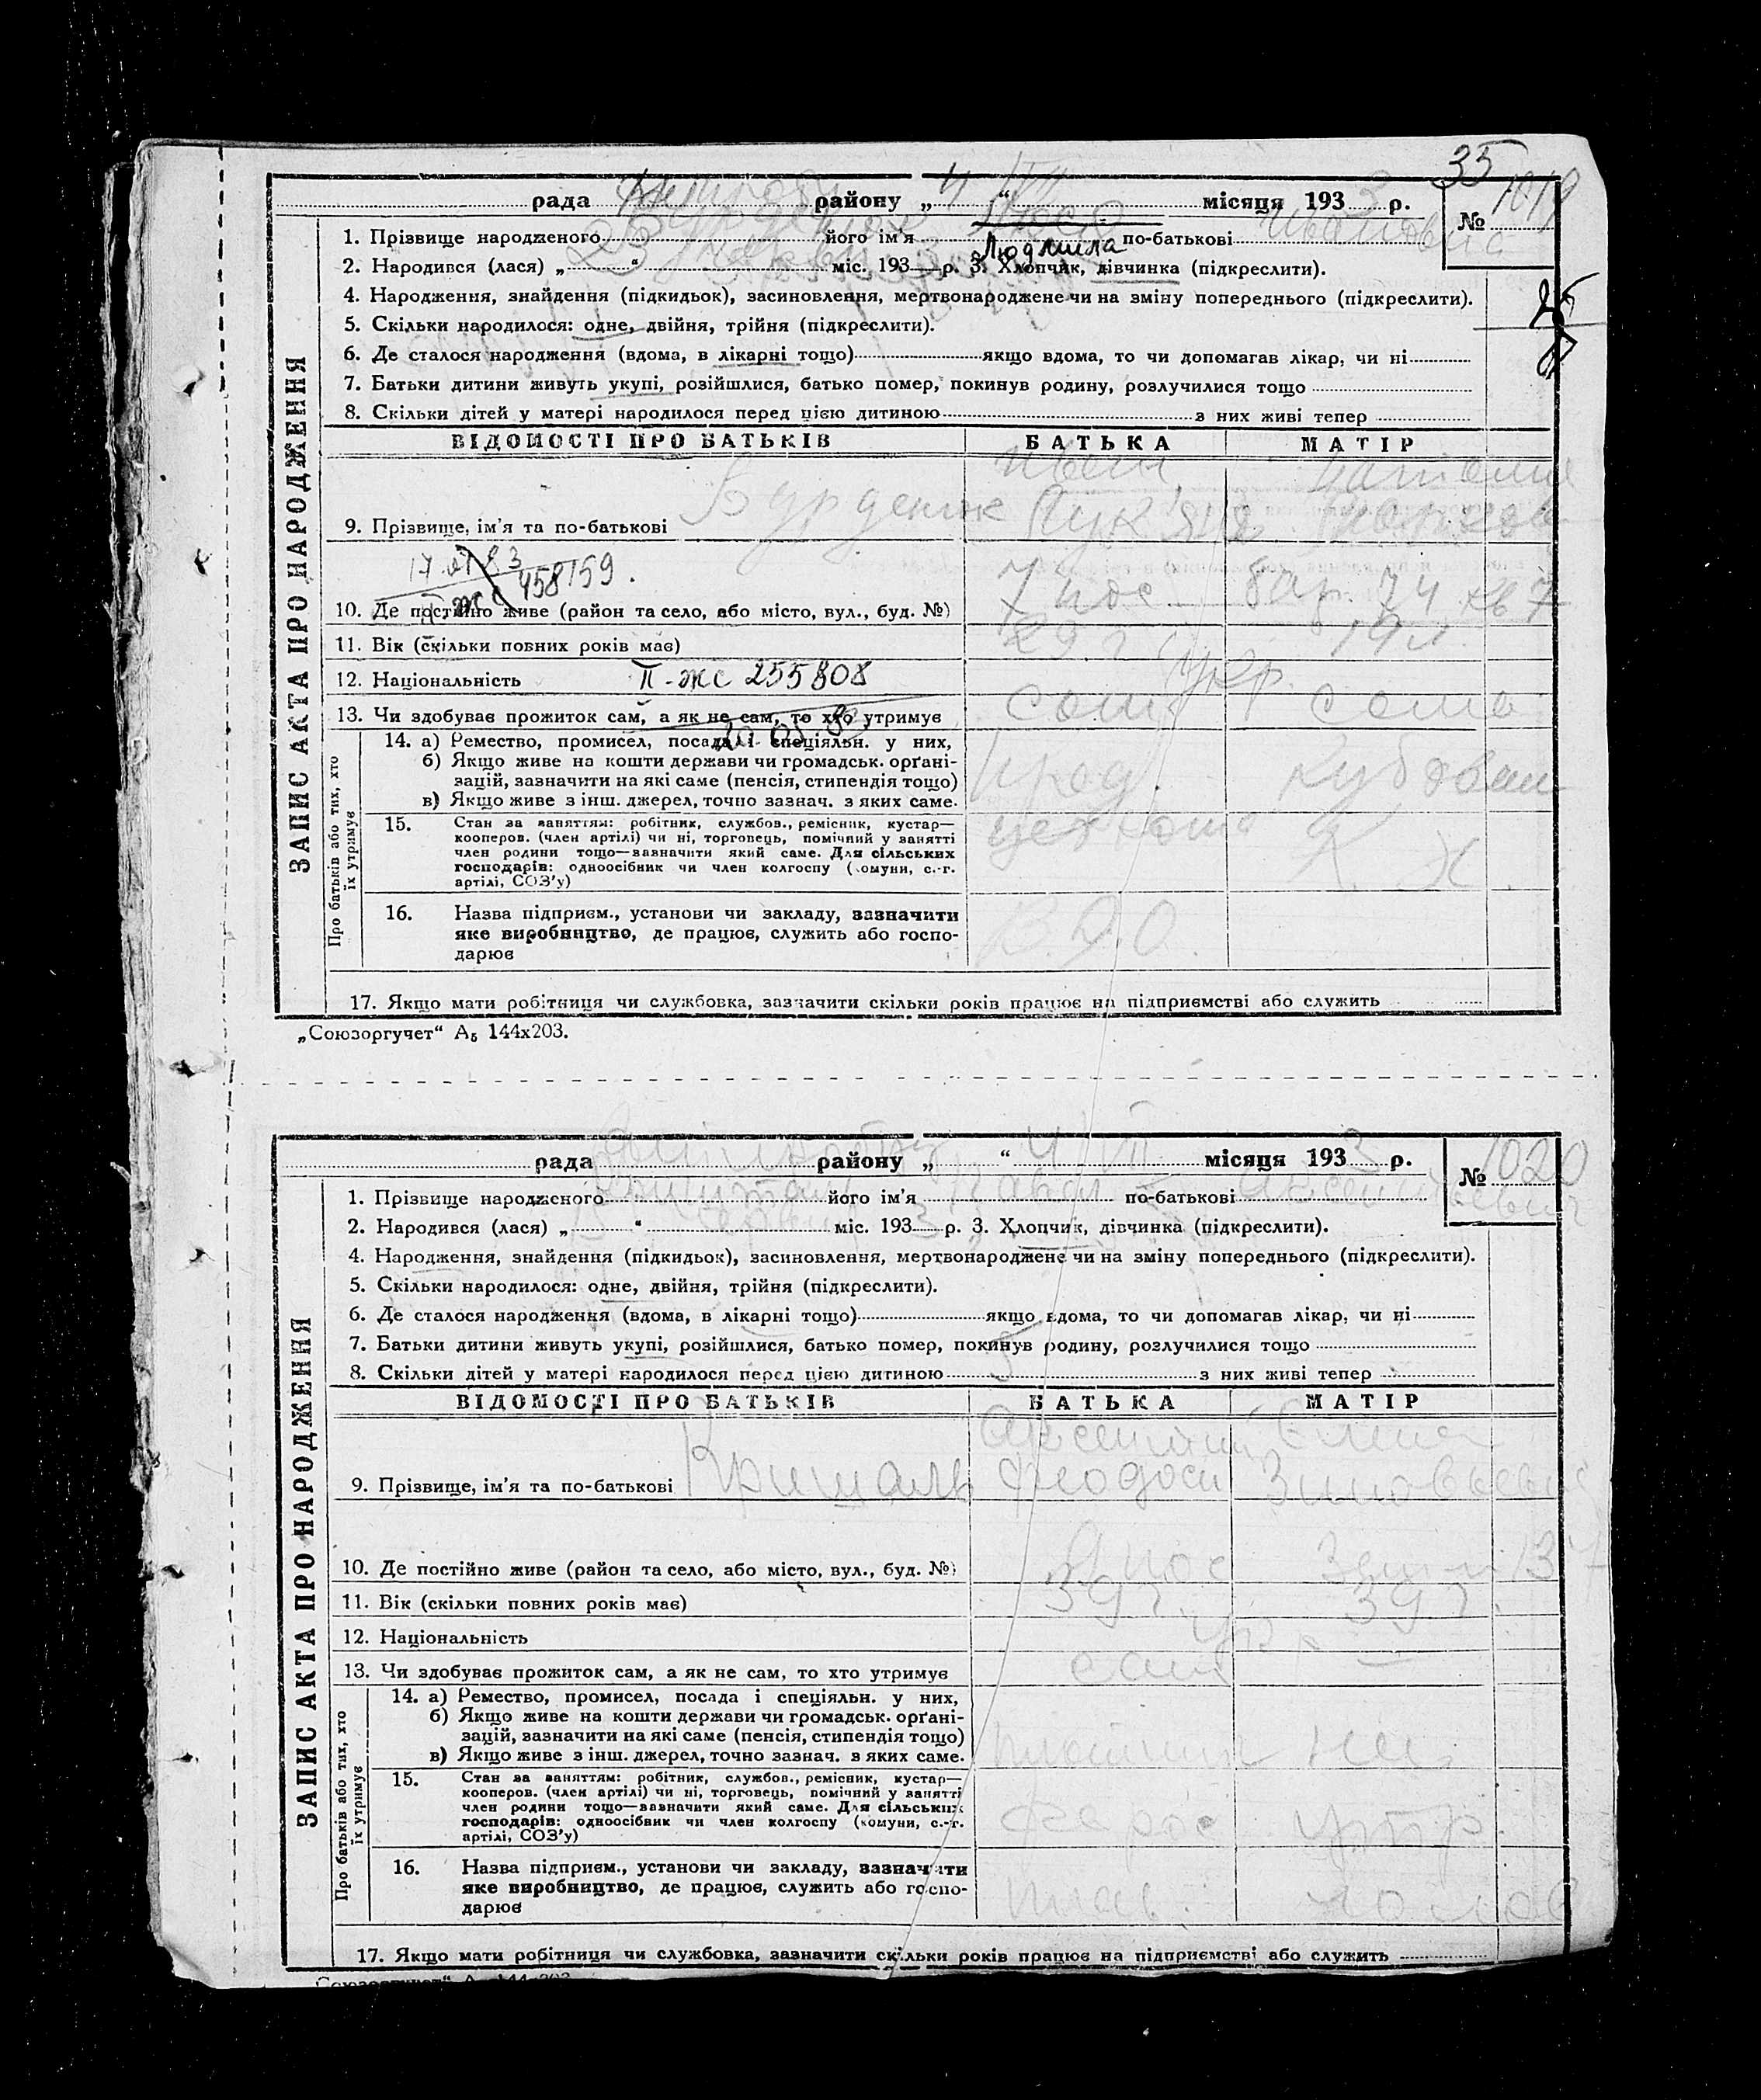 35
рада району „ 4 “ VII місяця 193 3 р.
№ 1019
1. Прізвище народженого його ім'я Людмила по-батькові Ивановна
2. Народився (лася) „ 23 “ міс. 193 р. 3. Хлопчик, дівчинка (підкреслити).
4. Народження, знайдення (підкидьок), засиновлення, мертвонароджене чи на зміну попереднього (підкреслити).
5. Скільки народилося: одне, двійня, трійня (підкреслити).
6. Де сталося народження (вдома, в лікарні тощо) якщо вдома, то чи допомагав лікар, чи ні
7. Батьки дитини живуть укупі, розійшлися, батько помер, покинув родину, розлучилися тощо
8. Скільки дітей у матері народилося перед цією дитиною з них живі тепер
ЗАПИС АКТА ПРО НАРОДЖЕННЯ
ВІДОМОСТІ ПРО БАТЬКІВ БАТЬКА МАТІР
Иван
9. Прізвище, ім'я та по-батькові Бурденюк
458159.
10. Де постійно живе (район та село, або місто, вул., буд. №) 7 пос бар. 74 кв 7
11. Вік (скільки повних років має) 29 г 19 л
12. Національність II-жс 255808 укр.
13. Чи здобуває прожиток сам, а як не сам, то хто утримує сам сама
Про батьків або тих, хто їх утримує
14. а) Ремество, промисел, посада і спеціяльн. у них,
б) Якщо живе на кошти держави чи громадськ. орґані-
зацій, зазначити на які саме (пенсія, стипендія тощо)
в) Якщо живе з інш. джерел, точно зазнач. з яких саме.
15. Стан за заняттям: робітник, службов., ремісник, кустар—
кооперов. (член артілі) чи ні, торговець, помічний у занятті
член родини тощо—зазначити який саме. Для сільських
господарів: одноосібник чи член колгоспу (комуни, с.-г.
артілі, СОЗ'у)
16. Назва підприєм., установи чи закладу, зазначити
яке виробництво, де працює, служить або госпо-
дарює
17. Якщо мати робітниця чи службовка, зазначити скільки років працює на підприємстві або служить
„Союзоргучет“ А₅ 144х203.
рада району „ 4 “ VII місяця 193 3 р.
№ 1020
1. Прізвище народженого його ім'я Павел по-батькові Арсентьевич
2. Народився (лася) „ “ міс. 193 3 р. 3. Хлопчик, дівчинка (підкреслити).
4. Народження, знайдення (підкидьок), засиновлення, мертвонароджене чи на зміну попереднього (підкреслити).
5. Скільки народилося: одне, двійня, трійня (підкреслити).
6. Де сталося народження (вдома, в лікарні тощо) якщо вдома, то чи допомагав лікар, чи ні
7. Батьки дитини живуть укупі, розійшлися, батько помер, покинув родину, розлучилися тощо
8. Скільки дітей у матері народилося перед цією дитиною 5 з них живі тепер
ЗАПИС АКТА ПРО НАРОДЖЕННЯ
ВІДОМОСТІ ПРО БАТЬКІВ БАТЬКА МАТІР
Арсентий Елена
9. Прізвище, ім'я та по-батькові Кришталь Феодоси Зиновьевна
10. Де постійно живе (район та село, або місто, вул., буд. №) пос 137
11. Вік (скільки повних років має) 39 г. 39 г.
12. Національність укр
13. Чи здобуває прожиток сам, а як не сам, то хто утримує сам —
Про батьків або тих, хто їх утримує
14. а) Ремество, промисел, посада і спеціяльн. у них,
б) Якщо живе на кошти держави чи громадськ. орґані-
зацій, зазначити на які саме (пенсія, стипендія тощо)
в) Якщо живе з інш. джерел, точно зазнач. з яких саме.
15. Стан за заняттям: робітник, службов., ремісник, кустар—
кооперов. (член артілі) чи ні, торговець, помічний у занятті
член родини тощо—зазначити який саме. Для сільських
господарів: одноосібник чи член колгоспу (комуни, с.-г.
артілі, СОЗ'у)
16. Назва підприєм., установи чи закладу, зазначити
яке виробництво, де працює, служить або госпо-
дарює
17. Якщо мати робітниця чи службовка, зазначити скільки років працює на підприємстві або служить
„Союзоргучет“ А₅ 144х203